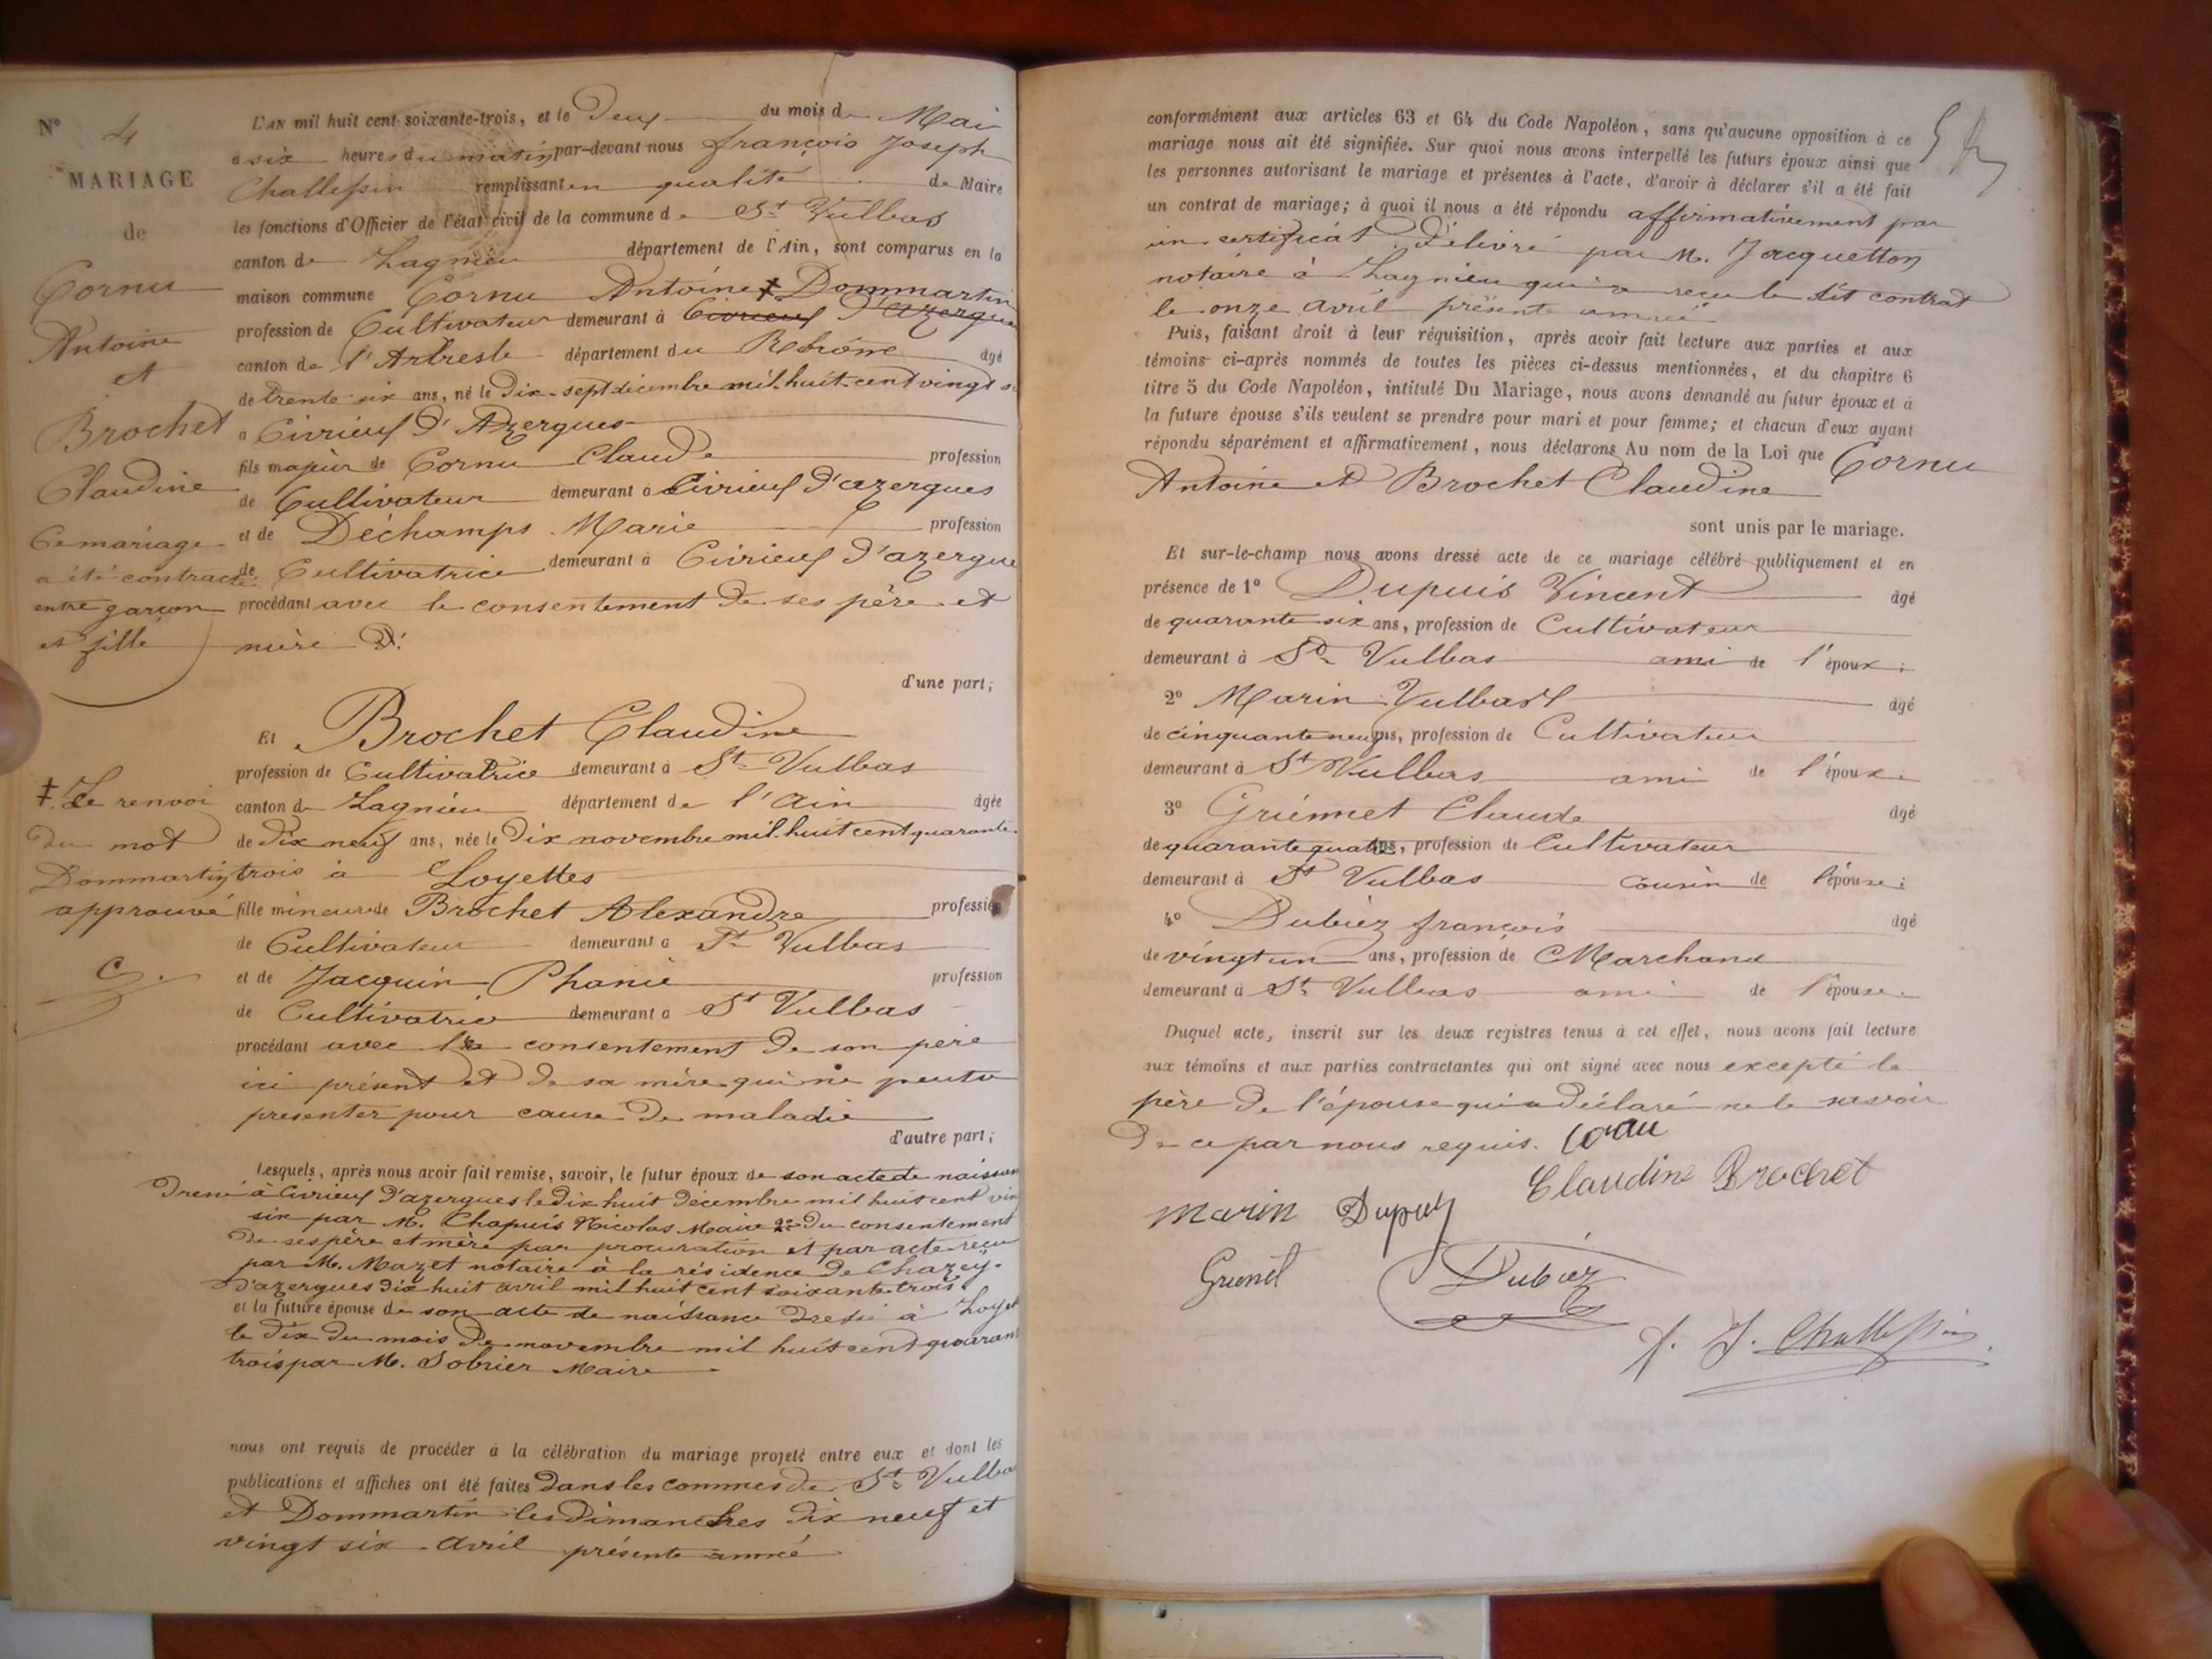 N° 4
MARIAGE
de
Cornu
Antoine
et
Brochet
Claudine
Ce mariage
a été contracté
entre garçon
et fille
‡ Le renvoi
du mot
Dommartin
approuvé
C.
L'AN mil huit cent soixante-trois, et le Deux du mois de Mai
à six heures du matin par-devant nous françois Joseph
Challessin remplissant en qualité de Maire
les fonctions d'Officier de l'état civil de la commune de St Vulbas
canton de Lagnieu département de l'Ain, sont comparus en la
maison commune Cornu Antoine ‡ Dommartin
profession de Cultivateur demeurant à Civrieux d'azergue
canton de l'Arbresle département du Rhône âgé
de trente six ans, né le Dix-sept décembre mil huit cent vingt
à Civrieux d'Azergues
fils majeur de Cornu Claude profession
de Cultivateur demeurant à Civrieux d'azergues
et de Déchamps Marie profession
de Cultivatrice demeurant à Civrieux d'azergue
procédant avec le consentement de ses père et
mère
d'une part;
Et Brochet Claudine
profession de Cultivatrice demeurant à St Vulbas
canton de Lagnieu département de l'ain âgée
de dix neuf ans, née le Dix novembre mil huit cent quarante
trois à Loyettes
fille mineure de Brochet Alexandre profession
de Cultivateur demeurant à St Vulbas
et de Jacquin Phanie profession
de Cultivatrice demeurant à St Vulbas
procédant avec le consentement de son père
ici présent et de sa mère qui ne peut se
presenter pour cause de maladie
d'autre part;
Lesquels, après nous avoir fait remise, savoir, le futur époux de son acte de naissan
dressé à Civrieux d'azergues le dix huit décembre mil huit cent vin
six par M. Chapuis Nicolas Maire 2° du consentement
de ses père et mère par procuration et par acte reçu
par M. Mazet notaire à la résidence de Chazey
d'azergues dix huit avril mil huit cent soixante trois
et la future épouse de son acte de naissance dressé à Loyet
le dix du mois de novembre mil huit cent quarant
trois par M. Sobrier Maire
nous ont requis de procéder à la célébration du mariage projeté entre eux et dont les
publications et affiches ont été faites dans les commes de St Vulba
et Dommartin les dimanches dix neuf et
vingt six avril présente année
conformément aux articles 63 et 64 du Code Napoléon, sans qu'aucune opposition à ce
mariage nous ait été signifiée. Sur quoi nous avons interpellé les futurs époux ainsi que
les personnes autorisant le mariage et présentes à l'acte, d'avoir à déclarer s'il a été fait
un contrat de mariage; à quoi il nous a été répondu affirmativement par
un certificat délivré par M. Jacquetton
notaire à Lagnieu qui a reçu le dit contrat
le onze avril présente année
Puis, faisant droit à leur réquisition, après avoir fait lecture aux parties et aux
témoins ci-après nommés de toutes les pièces ci-dessus mentionnées, et du chapitre 6
titre 5 du Code Napoléon, intitulé Du Mariage, nous avons demandé au futur époux et à
la future épouse s'ils veulent se prendre pour mari et pour femme; et chacun d'eux ayant
répondu séparément et affirmativement, nous déclarons Au nom de la Loi que Cornu
Antoine et Brochet Claudine
sont unis par le mariage.
Et sur-le-champ nous avons dressé acte de ce mariage célébré publiquement et en
présence de 1° Dupuis Vincent âgé
de quarante six ans, profession de Cultivateur
demeurant à St Vulbas ami de l'époux;
2° Marin Vulbast âgé
de cinquante neuf ans, profession de Cultivateur
demeurant à St Vulbas ami de l'époux
3° Griennet Claude âgé
de quarante quatre ans, profession de Cultivateur
demeurant à St Vulbas cousin de l'épouse;
4° Dubiez françois âgé
de vingt un ans, profession de Marchand
demeurant à St Vulbas ami de l'épouse
Duquel acte, inscrit sur les deux registres tenus à cet effet, nous avons fait lecture
aux témoins et aux parties contractantes qui ont signé avec nous excepté le
père de l'épouse qui a déclaré ne le savoir
de ce par nous requis. Cornu
Claudine Brochet
Marin Dupuy
Grienet Dubiez
f. J. Challessin